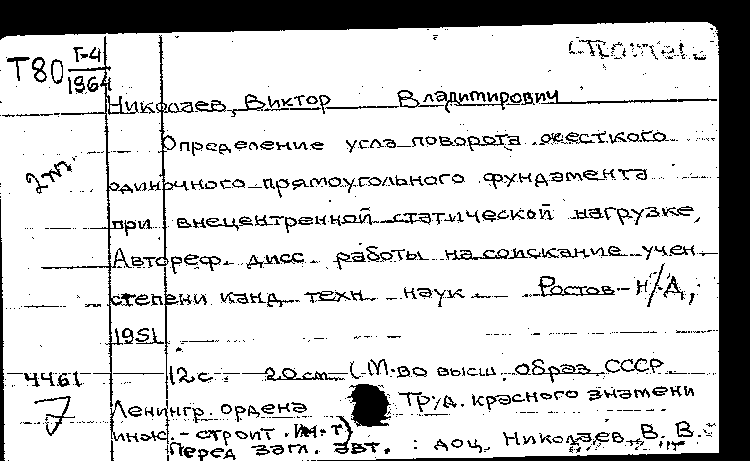 Т80 Г-4
1964
Николаев, Виктор Владимирович
Определение угла поворота жесткого
2 т.
одиночного прямоугольного фундамента
при внецентренной статической нагрузке,
Автореф. дисс. работы на соискание учен.
степени канд. техн. наук. Ростов-н/Д,
1951.
4461 12 с. 20 см. (М-во высш. образ. СССР.
Ленингр. ордена Труд. красного знамени
инж.-строит. ин-т)
Перед загл. авт. : доц. Николаев В. В.